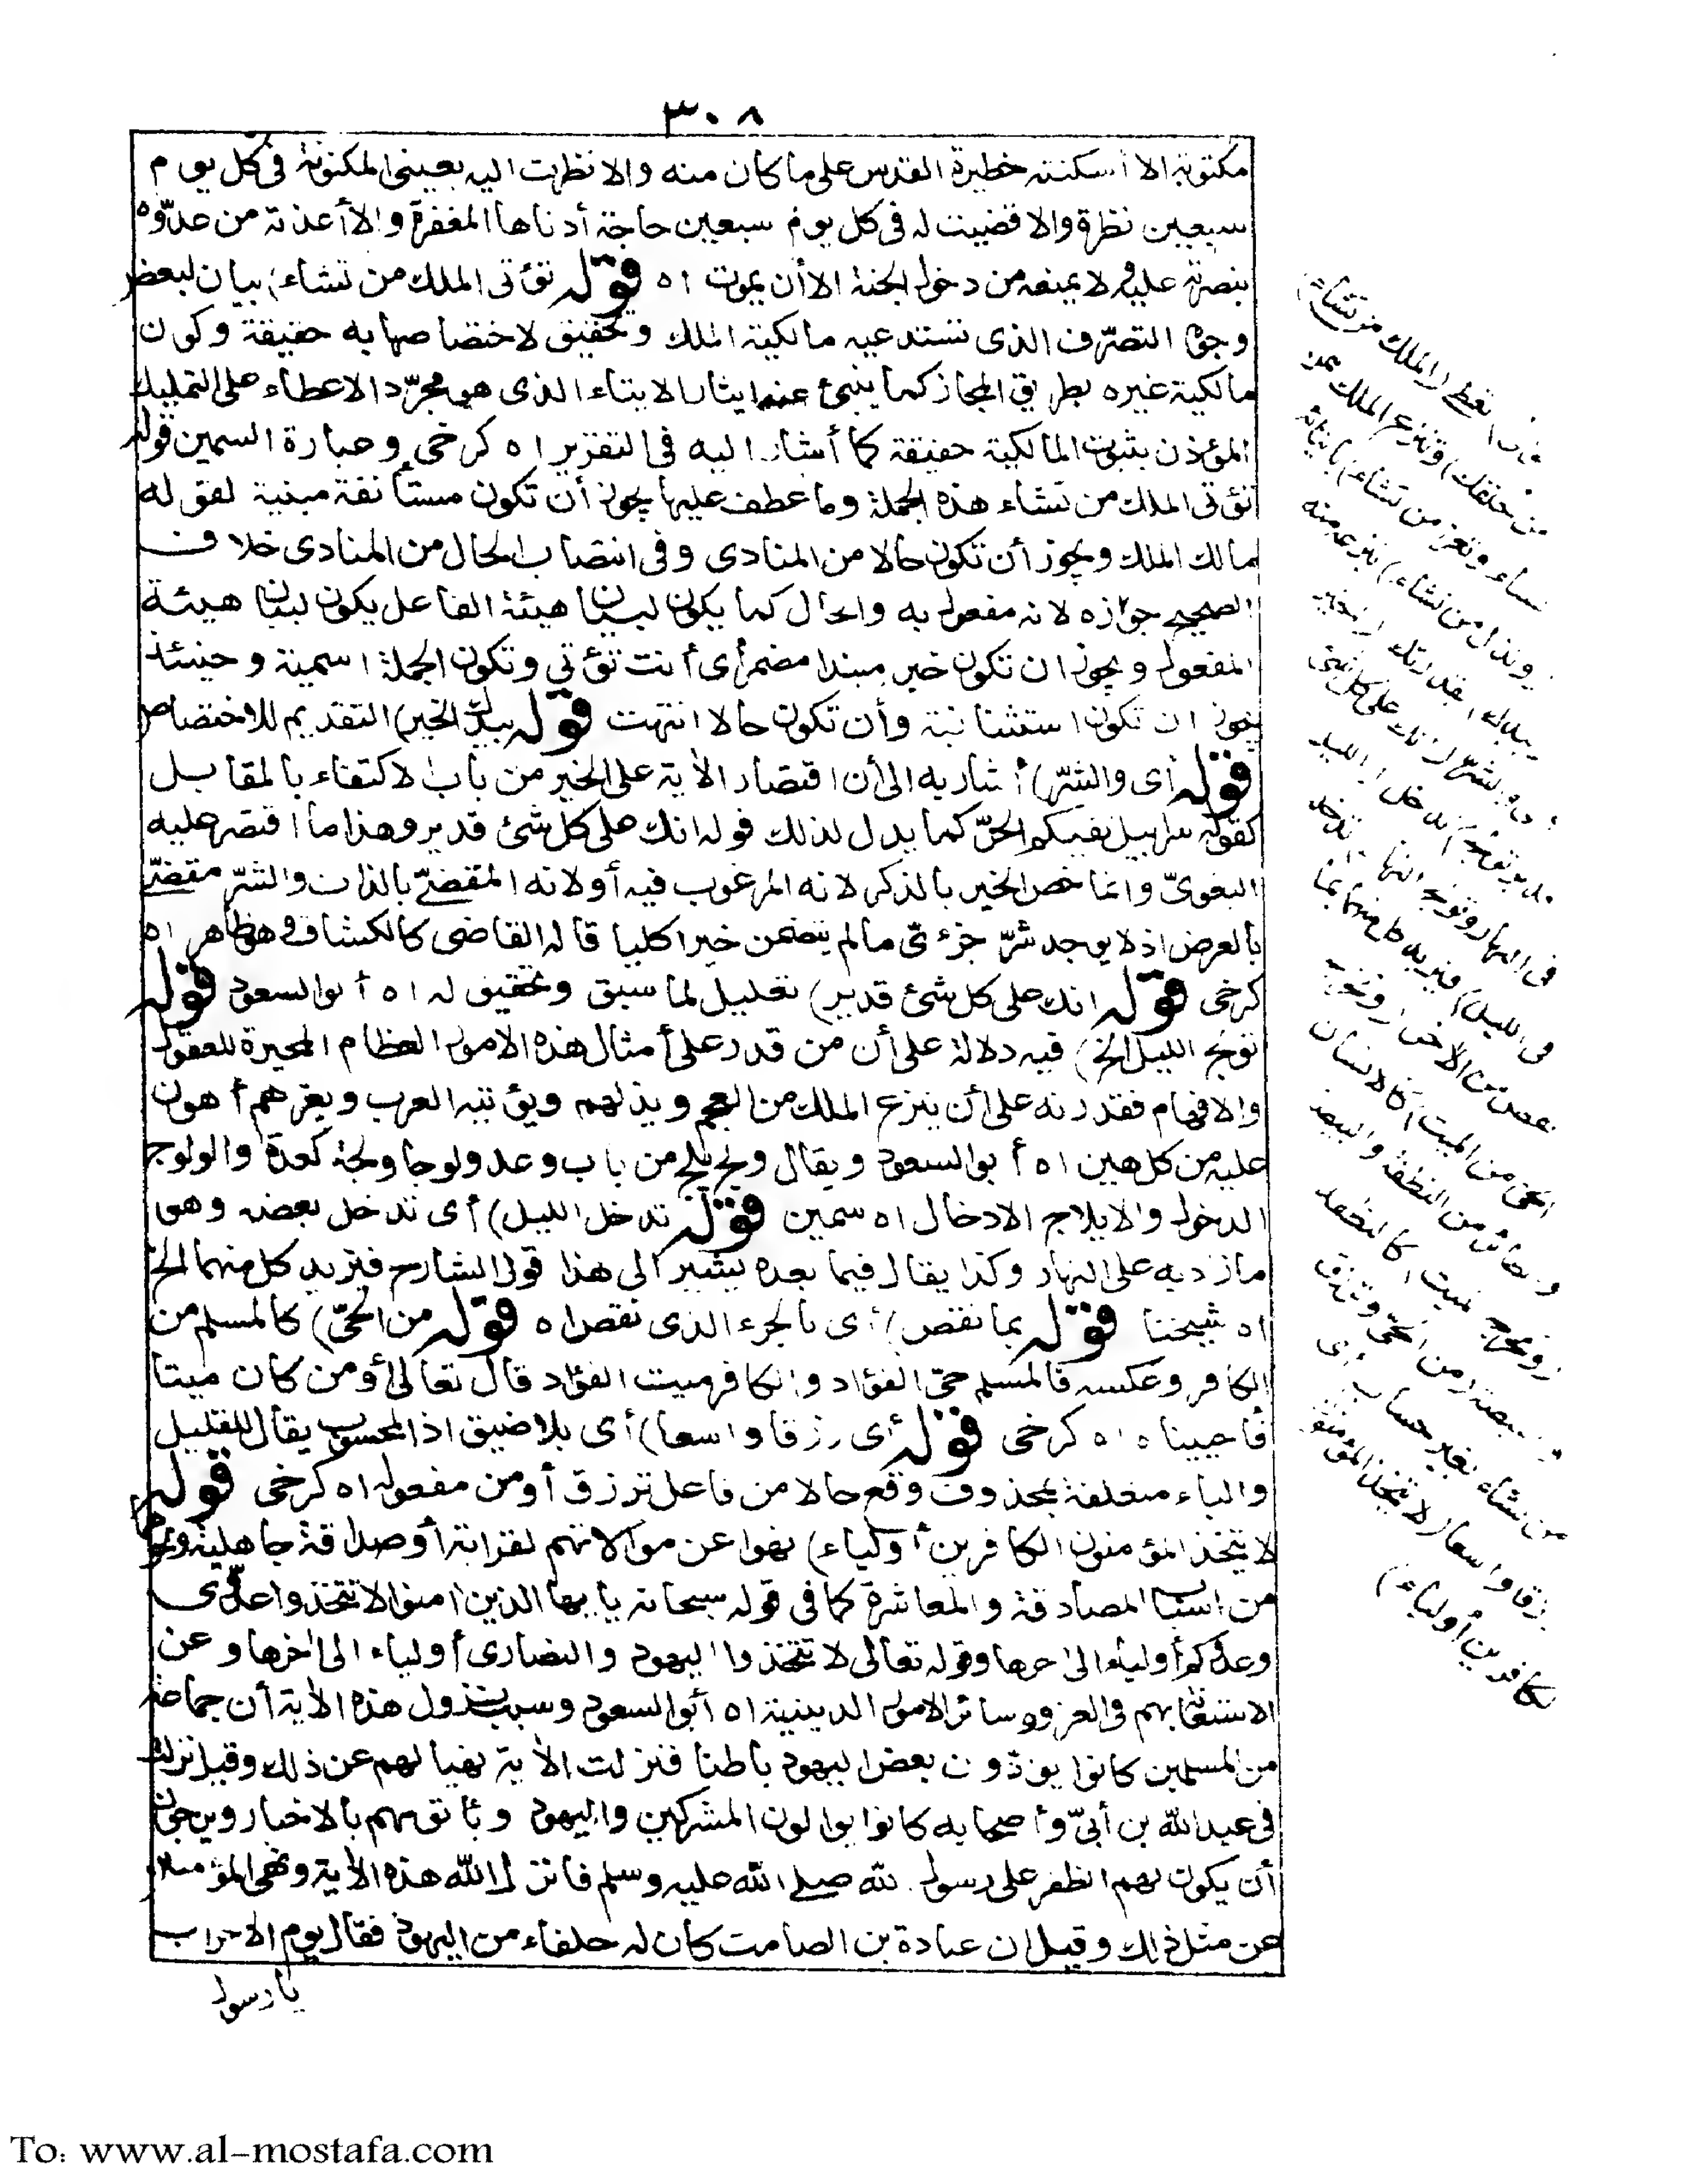 ٣٠٨
مكتوبة الا أسكنته خطيرة القدس على ما كان منه والا نظرت اليه بعينى المكنونة فى كل يوم
سبعين نظرة والا قضيت له فى كل يوم سبعين حاجة أدناها المغفرة والا أعذته من عدوّه
بنصرته عليه ولا يمنعه من دخول الجنة الا أن يموت اه قوله تؤتى الملك من تشاء) بيان لبعض
وجوه التصرّف الذى تستدعيه مالكية الملك وتحقيق لاختصاصها به حقيقة وكون
مالكية غيره بطريق المجاز كما ينبئ عنه ايثار الايتاء الذى هو مجرّد الاعطاء على التمليك
المؤذن بثبوت المالكية حقيقة كما أشار اليه فى التقرير اه كرخى وعبارة السمين قوله
تؤتى الملك من تشاء هذه الجملة وما عطف عليها يجوز أن تكون مستأنفة مبنية لقوله
مالك الملك ويجوز أن تكون حالا من المنادى وفى انتصاب الحال من المنادى خلاف
الصحيح جوازه لانه مفعول به والحال كما يكون لبيان هيئة الفاعل يكون لبيان هيئة
المفعول ويجوز ان تكون خبر مبتدا مضمر أى أنت تؤتى وتكون الجملة اسمية وحينئذ
يجوز ان تكون استئنافية وأن تكون حالا انتهت قوله بيدك الخير) التقديم للاختصاص
قوله أى والشرّ) أشار به الى أن اقتصار الآية على الخير من باب الاكتفاء بالمقابل
كقوله سرابيل تقيكم الحرّ كما يدل لذلك قوله انك على كل شئ قدير وهذا ما اقتصر عليه
البغوىّ وانما خص الخير بالذكر لانه المرغوب فيه أو لانه المقضىّ بالذات والشرّ مقضىّ
بالعرض اذ لا يوجد شرّ جزءىّ مالم يتضمن خيرا كليا قاله القاضى كالكشاف وهو ظاهر اه
كرخى قوله انك على كل شئ قدير) تعليل لما سبق وتحقيق له اه أبو السعود قوله
تولج الليل الخ) فيه دلالة على أن من قدر على أمثال هذه الامور العظام المحيرة للعقول
والافهام فقدرته على أن ينزع الملك من العجم ويذلهم ويؤتيه العرب ويعزهم أهون
عليه من كل هين اه أبو السعود ويقال ولج يلج من باب وعد ولوجا ولجة كعدة والولوج
الدخول والايلاج الادخال اه سمين قوله تدخل الليل) أى تدخل بعضه وهو
ما زد به على النهار وكذا يقال فيما بعده يشير الى هذا قول الشارح فيزيد كل منهما الخ
اه شيخنا قوله بما نقص) أى بالجزء الذى نقص اه قوله من الحىّ) كالمسلم من
الكافر وعكسه فالمسلم حىّ الفؤاد والكافر ميت الفؤاد قال تعالى أو من كان ميتا
فأحييناه اه كرخى قوله أى رزقا واسعا) أى بلا ضيق اذ المحسوب يقال للقليل
والباء متعلقة بمحذوف وقع حالا من فاعل ترزق أو من مفعوله اه كرخى قوله
لا يتخذ المؤمنون الكافرين أولياء) نهوا عن موالاتهم لقرابة أو صداقة جاهلية ونحوهما
من اسباب المصادقة والمعاشرة كما فى قوله سبحانه يا أيها الذين آمنوا لا تتخذوا عدوّى
وعدوّكم أولياء الى آخرها وقوله تعالى لا تتخذوا اليهود والنصارى أولياء الى آخرها وعن
الاستعانة بهم فى الغزو وسائر الامور الدينية اه أبو السعود وسبب نزول هذه الآية أن جماعة
من المسلمين كانوا يودّون بعض اليهود باطنا فنزلت الآية نهيا لهم عن ذلك وقيل نزلت
فى عبد الله بن أبىّ وأصحابه كانوا يوالون المشركين واليهود ويأتونهم بالاخبار ويرجون
أن يكون لهم الظفر على رسول الله صلى الله عليه وسلم فانزل الله هذه الآية ونهى المؤمنين
عن مثل ذلك وقيل ان عبادة بن الصامت كان له حلفاء من اليهود فقال يوم الاحزاب
يا رسول
تعطى (الملك من تشاء)
من خلقك) وتنزع الملك ممن
تشاء وتعز من تشاء) بايتائه
وتذل من تشاء) بنزعه منه
بيدك) بقدرتك (الخير)
أى والشرّ (انك على كل شئ
قدير تولج) تدخل (الليل
فى النهار وتولج النهار) تدخله
فى الليل) فيزيد كل منهما بما
نقص من الآخر (وتخرج
الحى من الميت) كالانسان
والطائر من النطفة والبيضة
(وتخرج الميت) كالنطفة
والبيضة (من الحى وترزق
من تشاء بغير حساب) أى
رزقا واسعا (لا يتخذ المؤمنون
الكافرين أولياء)
To: www.al-mostafa.com